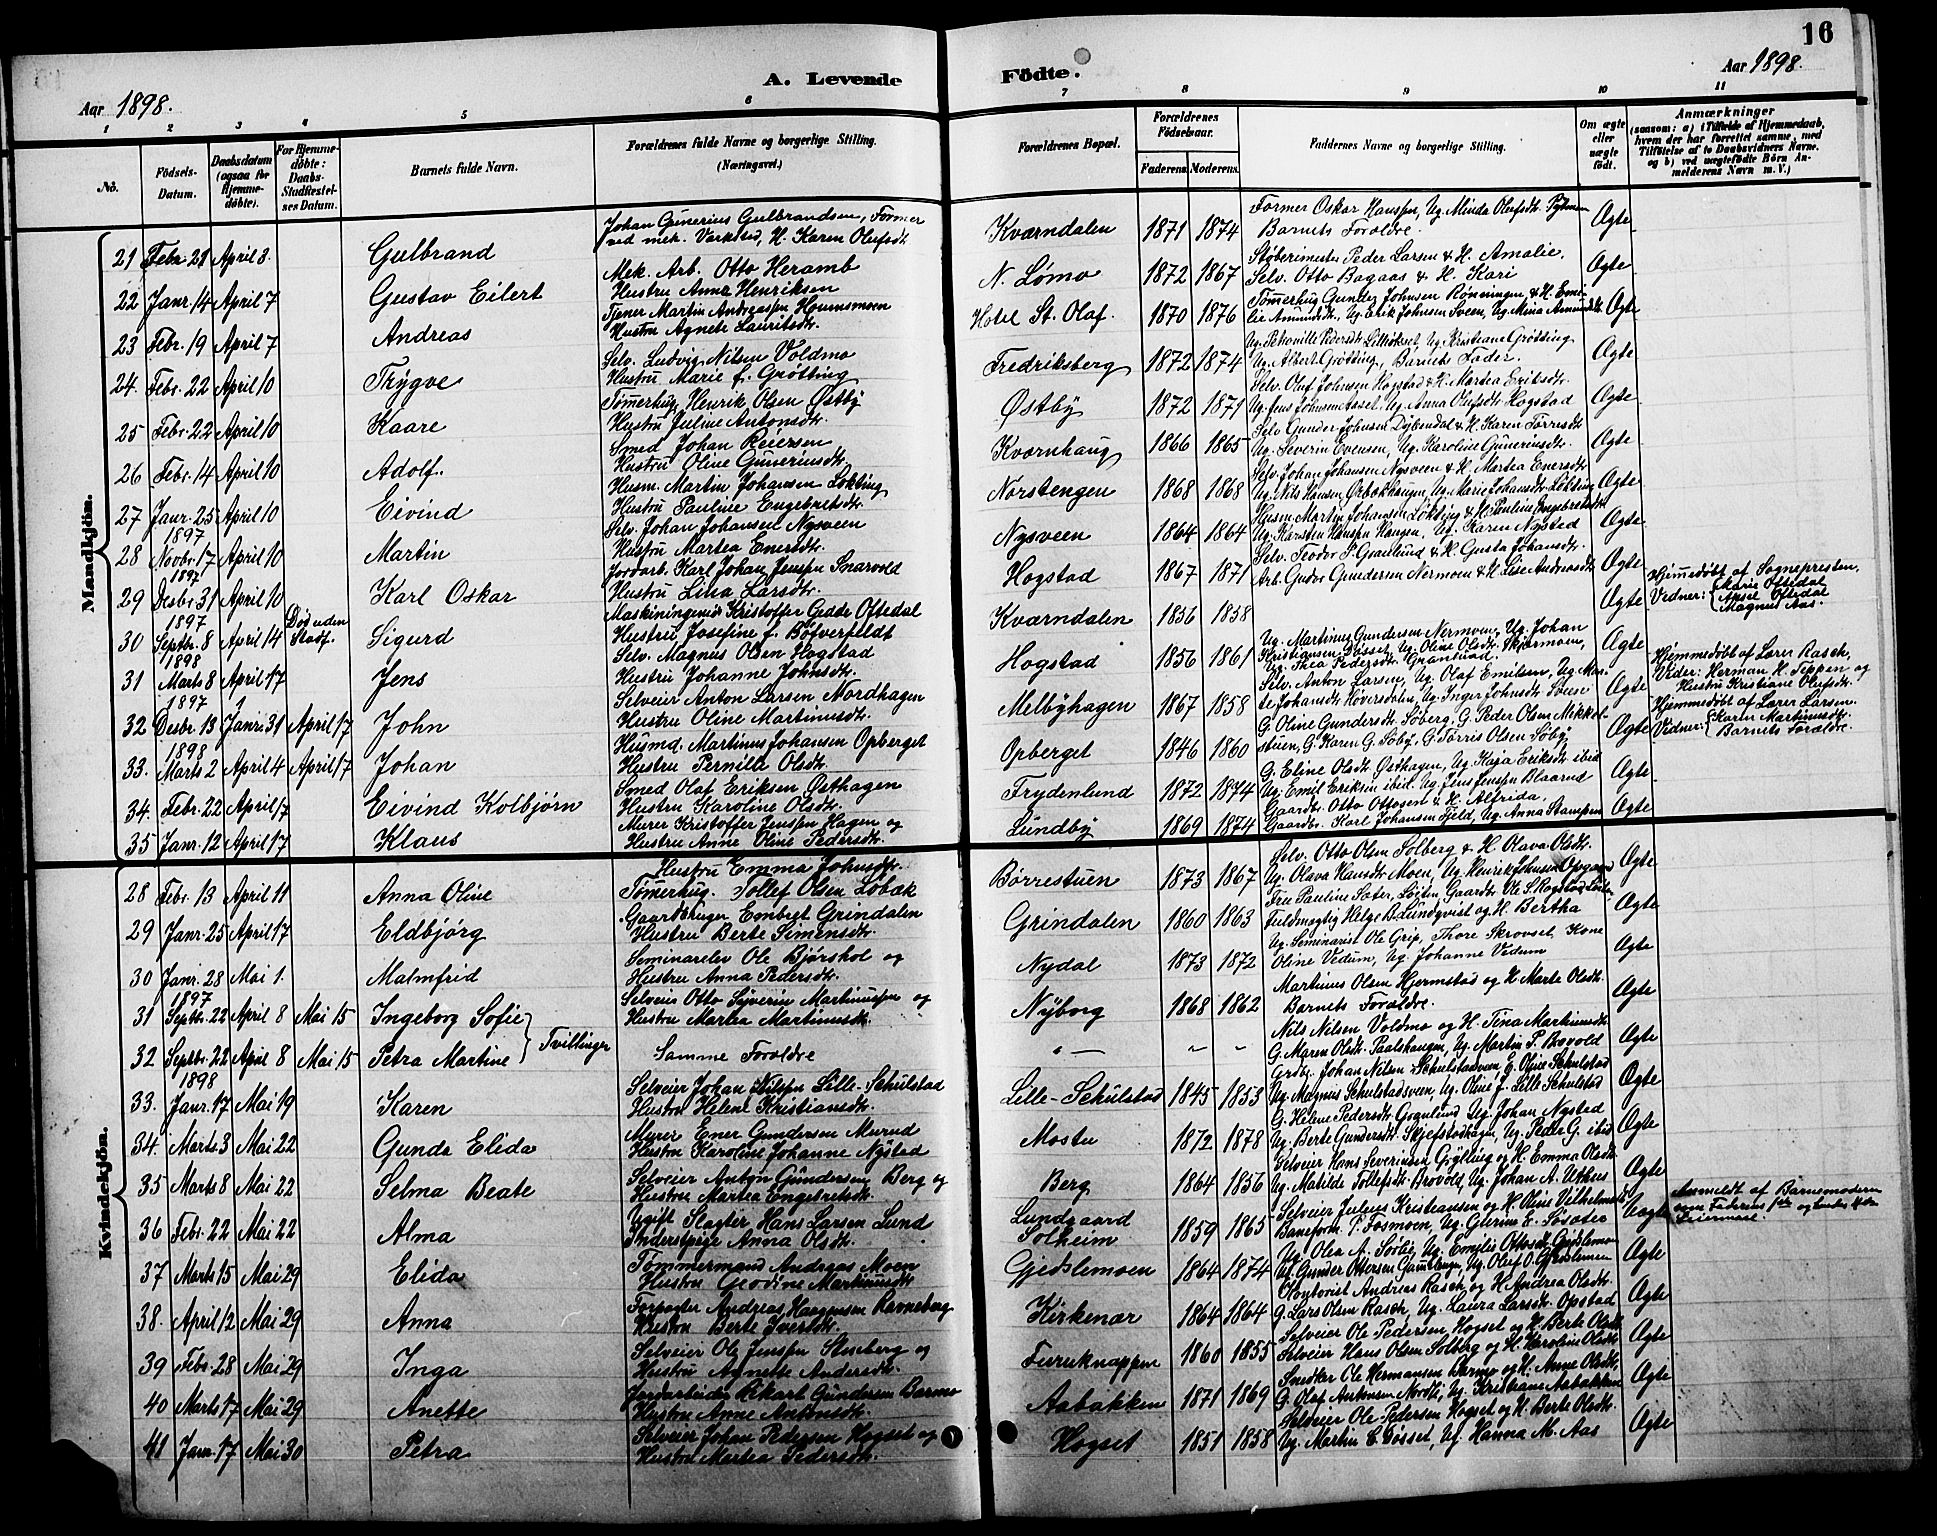 16
A. Levende Födte.
Aar 1898.
Aar 1898.
1 2 3 4 5 6 7 8 9 10 11
No.
Födsels-Datum.
Daabsdatum (ogsaa for Hjemmedöbte).
For Hjemmedöbte: Daabs-Stadfæstelses Datum.
Barnets fulde Navn.
Forældrenes fulde Navne og borgerlige Stilling. (Næringsvei.)
Forældrenes Bopæl.
Forældrenes Födselsaar.
Faderens. Moderens.
Faddernes Navne og borgerlige Stilling.
Om ægte eller uægte födt.
Anmærkninger
(saasom: a) i Tilfælde af Hjemmedaab, hvem der har forrettet samme, med Tilföielse af to Daabsvidners Navne. og b) ved uægtefödte Börn Anmelderens Navn m. V.)
Mandkjön.
21 Febr 21 April 3. Gulbrand Johan Gunerius Gulbrandsen, Former ved mek. Værksted, H. Karen Olufsdt. Kværndalen 1871 1874 Former Oskar Hanssen, Ug. Minda Olufsdt. Barnets Forældre. Ægte
22 Janr. 14 April 7 Gustav Eilert Mek. Arb. Otto Heramb Hustru Anna Henriksen N. Lømo 1872 1867 Støberimester Peder Larsen & H. Amalie, Selv. Otto Bagaas & H. Kari Ægte
23 Febr. 19 April 7 Andreas Tjener Martin Andreassen Hunnsmoen Hustru Agnete Lauritsdt. Hotel St. Olaf. 1870 1876 Tømmerhug Gunder Johnsen Rønningen & H. Emilie Amundsdt, Ug. Erik Johnsen Sveen, Ug. Mina Amundsdt. Ægte
24. Febr. 22 April 10 Trygve Selv. Ludvig Nilsen Voldmo Hustru Marie f. Grøtting Fredriksberg 1872 1874 Ug. Pedersdt. Lilleökset, Ug. Kristiane Grøtting Ug. Albert Grøtting, Barnets Fader. Ægte
25 Febr. 22 April 10 Kaare Tømmerhug Henrik Olsen Østby Hustru Juline Antonsdt. Østby 1872 1871 Selv. Oluf Johnsen Hogstad & H. Martea Eriksdt. Ug. Jens Johnsen, Ug. Anna Olufsdt. Hogstad Ægte
26 Febr. 14 April 10 Adolf. Smed Johan Reiersen Hustru Oline Guneriusdt. Kværnhaug 1866 1865 Selv. Gunder Johnsen Dybendal & H. Karen Torresdt Ug. Severin Evensen, Ug. Karoline Guneriusdt. Ægte
27 Janr. 25 April 10 Eivind Husm. Martin Johansen Løkting Hustru Pauline Engebretsdt. Norstengen 1868 1868 Selv. Johan Johansen Nysveen & H. Martea Enersdt Ug. Nils Hansen Ørbækhaugen, Ug. Marie Johansdt. Løkting Ægte
1897
28 Novbr. 17 April 10 Martin Selv. Johan Johansen Nysveen Hustru Martea Enersdt. Nysveen 1864 1864 Husm. Martin Johansen Løkting & H. Pauline Engebretsdt Ug. Karsten Hanssen Haugen, Ug. Karen Nystad Ægte
1897
29 Desbr. 31 April 10 Karl Oskar Jordarb. Karl Johan Jenssen Snarvold Hustru Lina Larsdt. Hogstad 1867 1871 Selv. Teodor P. Granlund & H. Gusta Johansdt. Arb. Gudor Gundersen Nermoen & H. Lise Andreasdt Ægte
1897
30 Septbr. 8 April 14 Död uden Stadf. Sigurd Maskiningeniør Kristoffer Gedde Oftedal Hustru Josefine f. Böfverfeldt Kværndalen 1856 1858 Ægte Hjemmedöbt af Sognepresten, Vidner: Marie Oftedal Aksel Oftedal Magnus Aas.
1898
31 Marts 8 April 17 Jens Selv. Magnus Olsen Hogstad Hustru Johanne Johnsdt. Hogstad 1856 1861 Ug. Martinus Gundersen Nermoen, Ug. Johan Kristiansen Dösset, Ug. Oline Olsdt. Skjærmoen, Ug. Thea Pedersdt. Granlund. Ægte
1897
32 Desbr. 13 Janr. 31 April 17 John Selveier Anton Larsen Nordhagen Hustru Oline Martinusdt. Melbyhagen 1867 1858 Selv. Anton Larsen, Ug. Olaf Emilsen, Ug. Marte Johnsdt. Røversdalen, Ug. Inger Johnsdt. Sveen Ægte Hjemmedöbt af Lærer Rasch, Vidner: Herman H. Teppen og Hustru Kristiane Olufsdt.
1898
33. Marts 2 April 4 April 17 Johan Husmd. Martinus Johansen Opberget Hustru Pernille Olsdt. Opberget 1846 1860 G. Oline Gundersdt. Söberg, G. Peder Olsen Mikkelstuen, G. Karen G. Söby, G. Torris Olsen Söby Ægte Hjemmedöbt af Lærer Larsen. Vidner: Karen Martinusdt. Barnets Forældre.
34. Febr. 22 April 17 Eivind Kolbjørn Smed Olaf Eriksen Østhagen Hustru Karoline Olsdt. Frydenlund 1872 1874 G. Eline Olsdt Østhagen, Ug. Kaja Eriksdt ibid Ug. Emil Eriksen ibid. Ug. Jens Jenssen Blaarud Ægte
35 Janr. 12 April 17 Klaus Murer Kristoffer Jenssen Hagen og Hustru Anne Oline Pedersdt. Lundby 1869 1874 Gaardbr. Otto Ottosen & H. Alfrida, Gaardbr. Karl Johansen Fjeld, Ug. Anna Stampen Ægte
Kvindekjön.
28 Febr. 13 April 11 Anna Oline Hustru Emma Johnsdt. Tømmerhug. Tollef Olsen Löbæk Börrestuen 1873 1867 Selv. Otto Olsen Solberg & H. Olava Olsdt. Ug. Olava Hansdt Moen, Ug. Henrik Johnsen Opgaarn Ægte
29 Janr. 25 April 17 Eldbjørg Gaardbruger Embret Grindalen Hustru Berte Simensdt. Grindalen 1860 1863 Fru Pauline Sæter, Löiten, Gaardb. Ole S. Rogstad Löiten Fuldmægtig Helge B. Lundqvist og H. Bertha Ægte
30 Janr. 28 Mai 1. Malmfrid Seminarelev Ole Bjørshol og Hustru Anna Pedersdt. Nydal 1873 1872 Ug. Seminarist Ole Grip, Thore Skrovset, Kone Oline Vedum, Ug. Johanne Vedum Ægte
1897
31 Septbr. 22 April 8 Mai 15 Ingeborg Sofie Selveier Otto Syverin Martinussen og Hustru Martea Martinusdt. Nyborg 1868 1862 Martinus Olsen Hjermstad og H. Marte Olsdt. Barnets Forældre. Ægte
32 Septbr. 22 April 8 Mai 15 Petra Martine Tvillinger Samme Forældre " — " " Nils Nilsen Voldmo og H. Tina Martinusdt. G. Maren Olsdt. Paalshaugen, Ug. Martin P. Brovold Ægte
1898
33. Janr. 17 Mai 19 Karen Selveier Johan Nilsen Lille-Schulstad Hustru Helene Kristiansdt. Lille-Schulstad 1845 1853 Grdbr. Johan Nilsen Schulstadsveen, E. Oline Schulstad Ug. Magnus Schulstadsveen, Ug. Oline J. Lille Schulstad Ægte
34. Marts 3 Mai 22 Gunda Elida Murer Ener Gundersen Murud Hustru Karoline Johanne Nystad Mostu 1872 1878 G. Helene Pedersdt. Granlund, Ug. Johan Nysted Ug. Berte Gundersdt. Skjefstadhagen, Ug. Peder G. ibid Ægte
35 Marts 8 Mai 22 Selma Beate Selveier Anton Gundersen Berg og Hustru Martea Engebretsdt. Berg 1864 1856 Selveier Hans Severinsen Grylling og H. Emma Olsdt Ug. Matilde Tollefsdt. Brovold, Ug. Johan A. Uthus Ægte
36 Febr. 22 Mai 22 Alma Ugift Slagter Hans Larsen Lund Inderstpige Anna Olsdt. Lundgaard Solheim 1859 1865 Selveier Julius Kristiansen og H. Oline Vilhelmsdt Baneform. P. Fosmoen, Ug. Glorine E. Sösæter Uægte Anmeldt af Barnemoderen som Faderens og hendes Leiermaal.
37 Marts 15 Mai 29 Elida Tömmermand Andreas Moen Hustru Gevdine Martinusdt Gjedslemoen 1864 1874 Ug. Olea A. Sorlie, Ug. Emilie Ottosdt. Gjedslemoen Ug. Gunder Ottersen, Ug. Oluf O. Gjedslemoen Ægte
38. April 12 Mai 29 Anna Forpagter Andreas Haagensen Ravneberg Hustru Berte Iversdt. Kirkenær 1864 1864 Kontorist Andreas Rasch og H. Andrea Olsdt. G. Lars Olsen Rasch, Ug. Laura Larsdt. Opstad Ægte
39 Febr. 28 Mai 29 Inga Selveier Ole Jenssen Stenberg og Hustru Agnette Andersdt. Furuknappen 1860 1855 Selveier Ole Pedersen Hogset og H. Berte Olsdt Selveier Hans Olsen Solberg og H. Karoline Olsdt Ægte
40 Marts 17 Mai 29 Anette Jordarbeider Rikart Gundersen Barmo Hustru Anne Antonsdt. Aabakken 1871 1869 Snedker Ole Hermansen Barmo og H. Anne Olsdt. G. Olaf Antonsen, Ug. Kristiane Aabakken Ægte
41 Janr. 17 Mai 30 Petra Selveier Johan Pedersen Hogset og Hustru Martea Pedersdt. Hogset 1851 1858 Selveier Ole Pedersen Hogset og H. Berte Olsdt. Ug. Martin C. Dösset, Ug. Hanna M. Aas Ægte